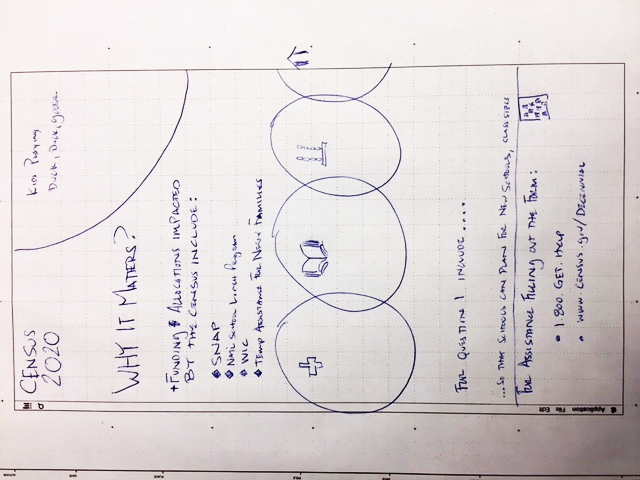 Application File Edit
CENSUS
2020
KIDS PLAYING
DUCK, DUCK, GOOSE
WHY IT MATTERS?
+ FUNDING & ALLOCATIONS IMPACTED
BY THE CENSUS INCLUDE:
◆ SNAP
◆ Nat'l School Lunch Program
◆ WIC
◆ TEMP ASSISTANCE FOR NEEDY FAMILIES
FOR QUESTION 1 INCLUDE ....
...SO THAT SCHOOLS CAN PLAN FOR NEW SCHOOLS, CLASS SIZES
FOR ASSISTANCE FILLING OUT THE FORM:
• 1.800.GET.HELP
• WWW.CENSUS.gov/DECENNIAL